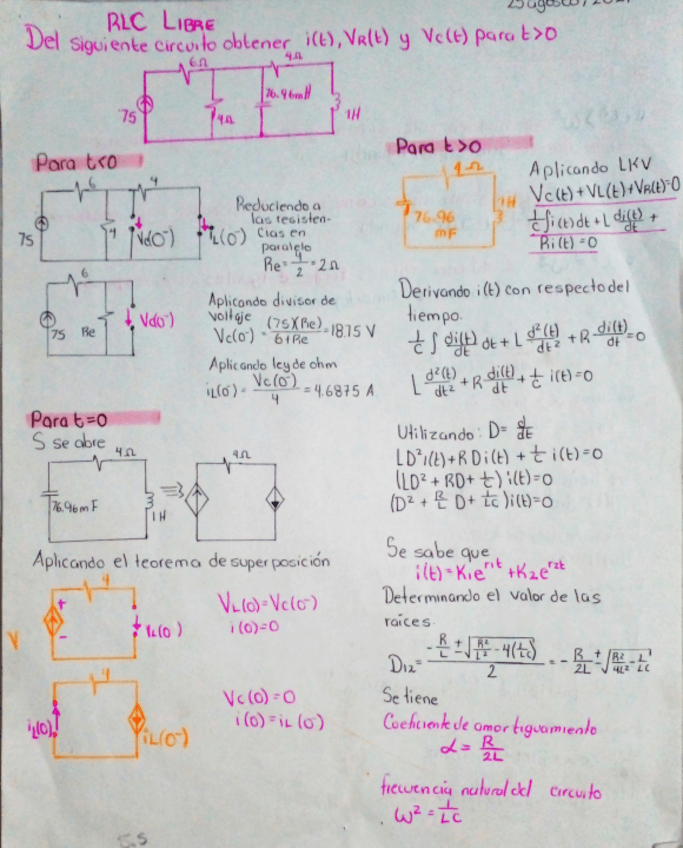 25 agosto/202
RLC LIBRE
Del siguiente circuito obtener i(t), VR(t) y Vc(t) para t>0
6Ω
4Ω
75
4Ω
76.96mH
1H
Para t<0
6
4
75
4
Vc(0⁻)
iL(0⁻)
Reduciendo a
las resisten-
cias en
paralelo
Re = 4/2 = 2Ω
6
75
Re
Vc(0⁻)
Aplicando divisor de
voltaje
Vc(0⁻) = (75)(Re)/6+Re = 18.75 V
Aplicando ley de ohm
iL(0⁻) = Vc(0⁻)/4 = 4.6875 A
Para t=0
S se abre
4Ω
76.96m F
1H
4Ω
Aplicando el teorema de superposición
4
V
+
-
VL(0)
VL(0)=Vc(0⁻)
i(0)=0
4
iL(0)
iL(0⁻)
Vc(0)=0
i(0)=iL(0⁻)
Para t>0
4Ω
76.96
mF
1H
Aplicando LKV
Vc(t)+VL(t)+VR(t)=0
1/c ∫i(t)dt + L di(t)/dt +
Ri(t)=0
Derivando i(t) con respecto del
tiempo.
1/c ∫ di(t)/dt dt + L d²(t)/dt² + R di(t)/dt = 0
L d²(t)/dt² + R di(t)/dt + 1/c i(t)=0
Utilizando: D= d/dt
LD²i(t)+RDi(t)+ 1/c i(t)=0
(LD² + RD+ 1/c)i(t)=0
(D² + R/L D+ 1/LC)i(t)=0
Se sabe que
i(t)=K₁e^r₁t + K₂e^r₂t
Determinando el valor de las
raíces.
D₁₂ = (-R/L ± √(R²/L² - 4(1/LC)))/2 = -R/2L ± √(R²/4L² - 1/LC)
Se tiene
Coeficiente de amortiguamiento
α = R/2L
frecuencia natural del circuito
ω² = 1/LC